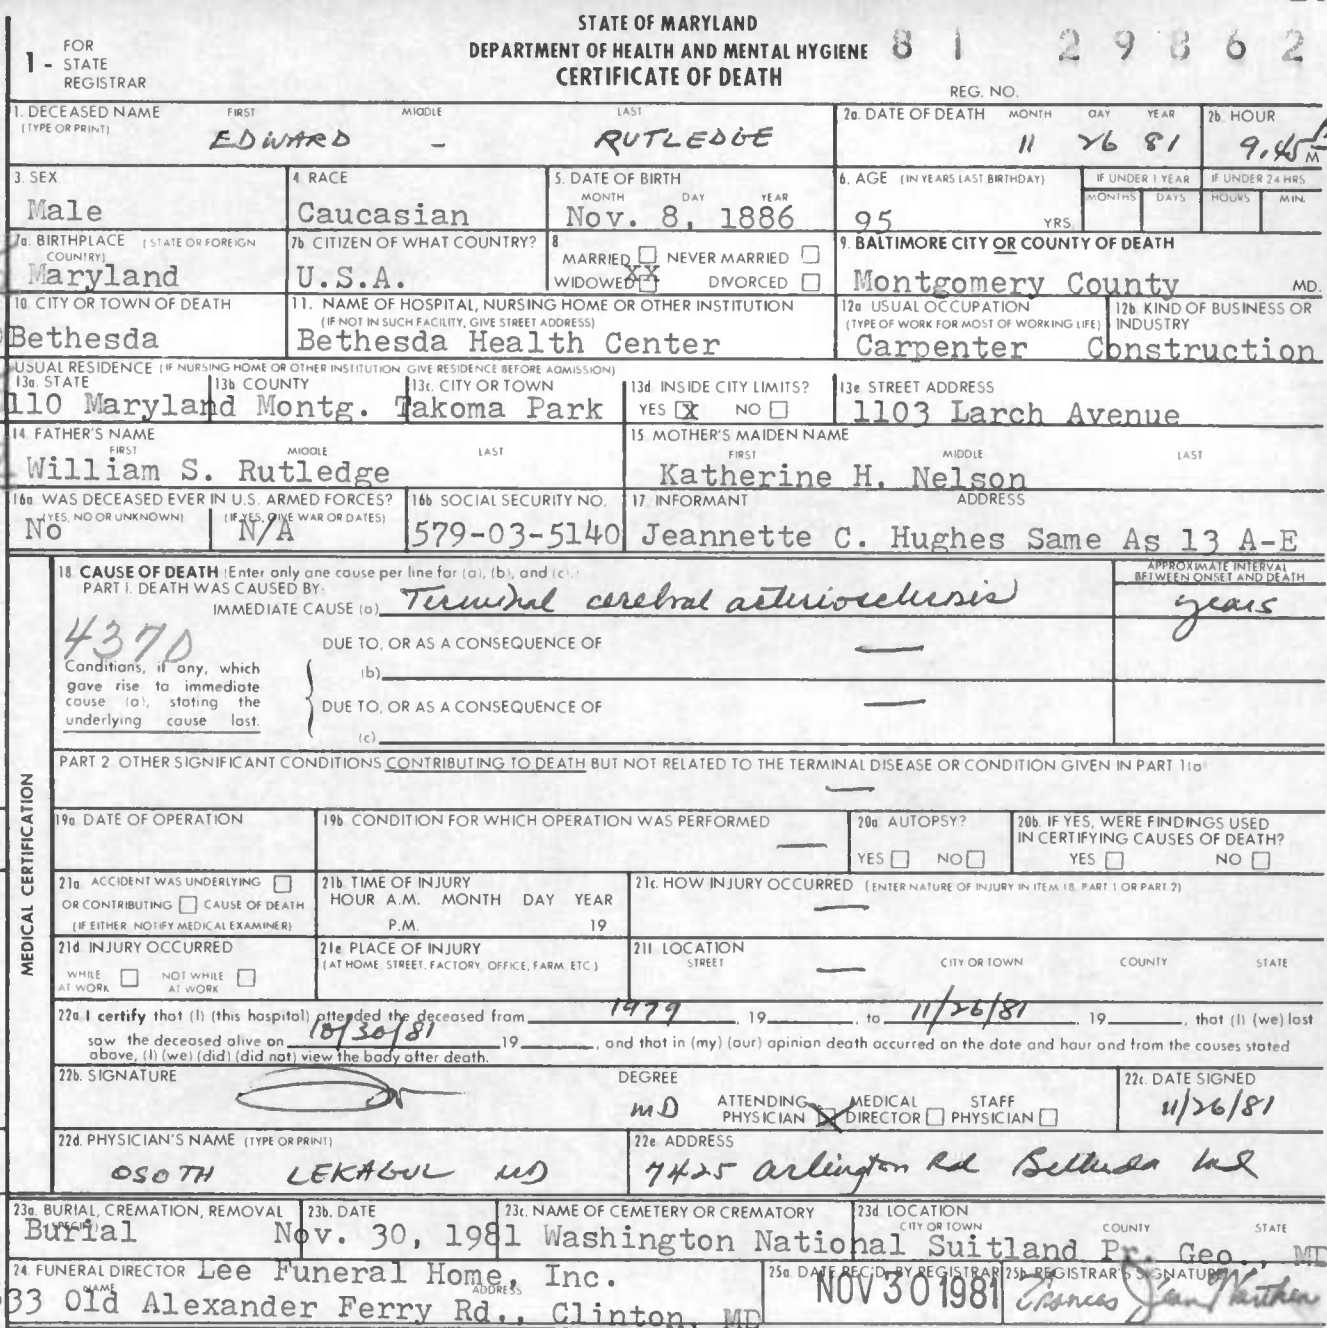 STATE OF MARYLAND
DEPARTMENT OF HEALTH AND MENTAL HYGIENE
CERTIFICATE OF DEATH
81 29862
1 - FOR STATE REGISTRAR
REG. NO.
1. DECEASED NAME (TYPE OR PRINT) FIRST MIDDLE LAST
EDWARD - RUTLEDGE
2a. DATE OF DEATH MONTH DAY YEAR
11 26 81
2b. HOUR
9.45 A M
3. SEX
Male
4. RACE
Caucasian
5. DATE OF BIRTH MONTH DAY YEAR
Nov. 8, 1886
6. AGE (IN YEARS LAST BIRTHDAY) IF UNDER 1 YEAR MONTHS DAYS IF UNDER 24 HRS HOURS MIN.
95 YRS
7a. BIRTHPLACE (STATE OR FOREIGN COUNTRY)
Maryland
7b. CITIZEN OF WHAT COUNTRY?
U.S.A.
8. MARRIED NEVER MARRIED
WIDOWED XX DIVORCED
9. BALTIMORE CITY OR COUNTY OF DEATH
Montgomery County MD.
10. CITY OR TOWN OF DEATH
Bethesda
11. NAME OF HOSPITAL, NURSING HOME OR OTHER INSTITUTION
(IF NOT IN SUCH FACILITY, GIVE STREET ADDRESS)
Bethesda Health Center
12a USUAL OCCUPATION (TYPE OF WORK FOR MOST OF WORKING LIFE)
Carpenter
12b. KIND OF BUSINESS OR INDUSTRY
Construction
USUAL RESIDENCE (IF NURSING HOME OR OTHER INSTITUTION GIVE RESIDENCE BEFORE ADMISSION)
13a. STATE 13b COUNTY 13c. CITY OR TOWN 13d INSIDE CITY LIMITS? 13e STREET ADDRESS
110 Maryland Montg. Takoma Park YES X NO 1103 Larch Avenue
14. FATHER'S NAME FIRST MIDDLE LAST
William S. Rutledge
15. MOTHER'S MAIDEN NAME FIRST MIDDLE LAST
Katherine H. Nelson
16a WAS DECEASED EVER IN U.S. ARMED FORCES?
(YES, NO OR UNKNOWN) (IF YES, GIVE WAR OR DATES)
No N/A
16b SOCIAL SECURITY NO.
579-03-5140
17. INFORMANT ADDRESS
Jeannette C. Hughes Same As 13 A-E
MEDICAL CERTIFICATION
18 CAUSE OF DEATH (Enter only one cause per line for (a), (b), and (c).)
APPROXIMATE INTERVAL BETWEEN ONSET AND DEATH
PART I. DEATH WAS CAUSED BY:
IMMEDIATE CAUSE (a) Terminal cerebral arteriosclerosis years
4370
DUE TO, OR AS A CONSEQUENCE OF —
Conditions, if any, which gave rise to immediate cause (a), stating the underlying cause last.
(b)
DUE TO, OR AS A CONSEQUENCE OF —
(c)
PART 2 OTHER SIGNIFICANT CONDITIONS CONTRIBUTING TO DEATH BUT NOT RELATED TO THE TERMINAL DISEASE OR CONDITION GIVEN IN PART 1(a)
—
19a DATE OF OPERATION
19b CONDITION FOR WHICH OPERATION WAS PERFORMED
—
20a AUTOPSY?
YES NO
20b. IF YES, WERE FINDINGS USED IN CERTIFYING CAUSES OF DEATH?
YES NO
21a ACCIDENT WAS UNDERLYING
OR CONTRIBUTING CAUSE OF DEATH
(IF EITHER, NOTIFY MEDICAL EXAMINER)
21b TIME OF INJURY
HOUR A.M. MONTH DAY YEAR
P.M. 19
21c. HOW INJURY OCCURRED (ENTER NATURE OF INJURY IN ITEM 18, PART 1 OR PART 2)
—
21d INJURY OCCURRED
WHILE AT WORK NOT WHILE AT WORK
21e PLACE OF INJURY
(AT HOME, STREET, FACTORY, OFFICE, FARM, ETC.)
21f LOCATION
STREET CITY OR TOWN COUNTY STATE
—
22a I certify that (I) (this hospital) attended the deceased from 1979, 19 , to 11/26/81, 19 , that (I) (we) last
saw the deceased alive on 10/30/81 19 , and that in (my) (our) opinion death occurred on the date and hour and from the causes stated
above, (I) (we) (did) (did not) view the body after death.
22b. SIGNATURE
DEGREE
MD
ATTENDING PHYSICIAN X MEDICAL DIRECTOR STAFF PHYSICIAN
22c. DATE SIGNED
11/26/81
22d. PHYSICIAN'S NAME (TYPE OR PRINT)
OSOTH LEKAGUL MD
22e ADDRESS
7425 Arlington Rd Bethesda Md
23a. BURIAL, CREMATION, REMOVAL (SPECIFY)
Burial
23b. DATE
Nov. 30, 1981
23c. NAME OF CEMETERY OR CREMATORY
Washington National
23d LOCATION CITY OR TOWN COUNTY STATE
Suitland Pr. Geo., MD
24. FUNERAL DIRECTOR NAME ADDRESS
Lee Funeral Home, Inc.
33 Old Alexander Ferry Rd., Clinton, MD
25a. DATE REC'D. BY REGISTRAR
NOV 30 1981
25b. REGISTRAR'S SIGNATURE
Frances Jean